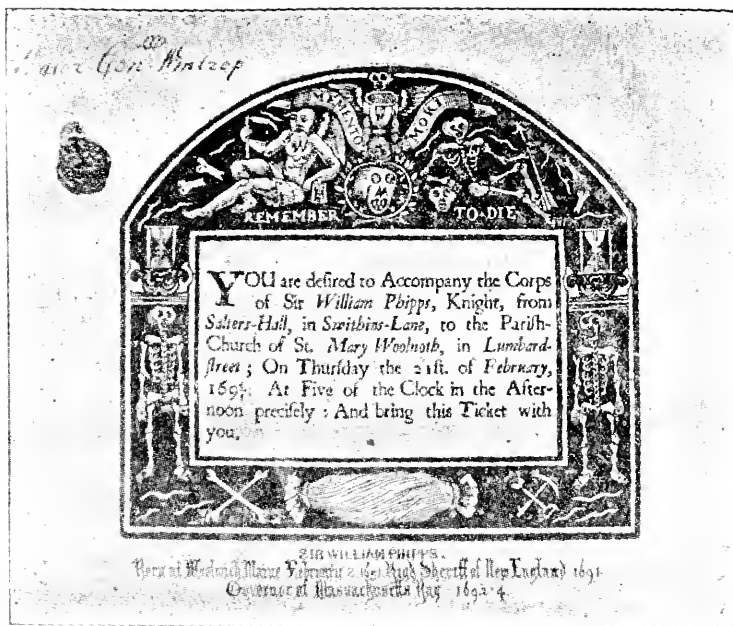 Gen Wintrop
MEMENTO MORI
REMEMBER TO DIE
YOU are desired to Accompany the Corps
of Sir William Phipps, Knight, from
Salters-Hall, in Swithins-Lane, to the Parish-
Church of St. Mary Woolnoth, in Lumbard-
street; On Thursday the 21st. of February,
At Five of the Clock in the After-
noon precisely: And bring this Ticket with
you.
SIR WILLIAM PHIPPS.
Born at Maine February 2 High Sheriff of New England 1691
Governor of Massachusetts Bay 1692-4